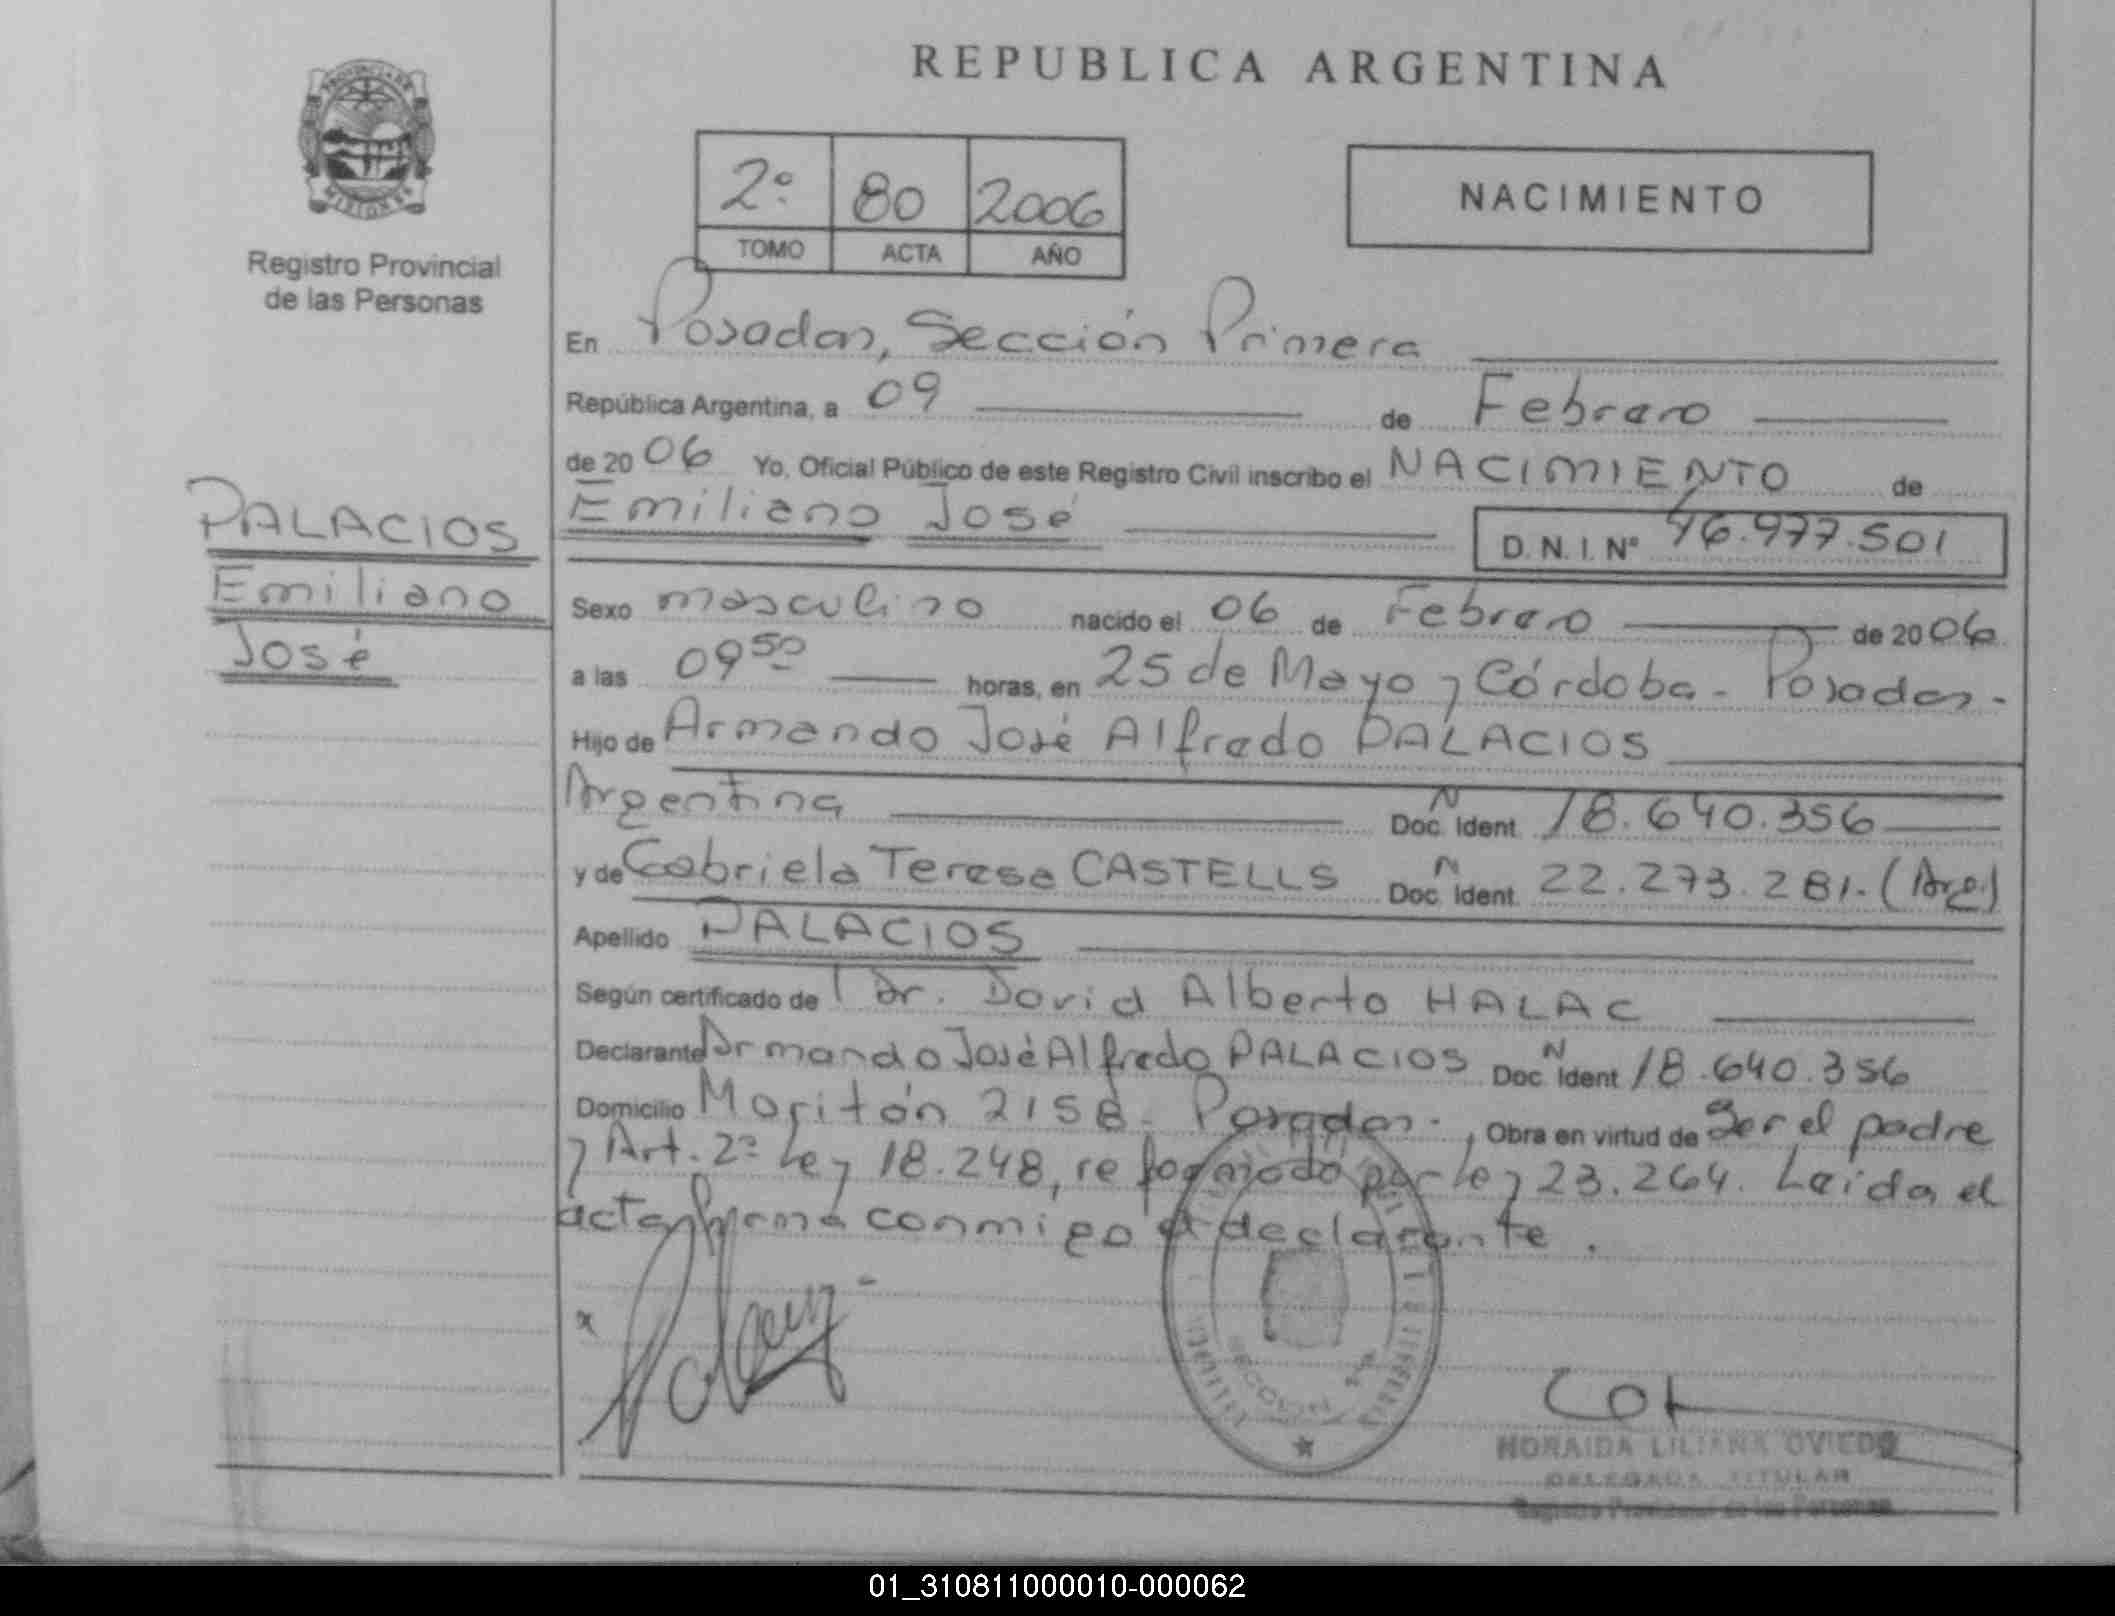 REPUBLICA ARGENTINA
PROVINCIA DE
MISIONES
Registro Provincial
de las Personas
2º 80 2006
TOMO ACTA AÑO
NACIMIENTO
En Posadas, Sección Primera
República Argentina, a 09 de Febrero
de 2006 Yo, Oficial Público de este Registro Civil inscribo el NACIMIENTO de
Emiliano José
D.N.I. Nº 46.977.501
PALACIOS
Emiliano
José
Sexo masculino nacido el 06 de Febrero de 2006
a las 09 50 horas, en 25 de Mayo y Córdoba - Posadas -
Hijo de Armando José Alfredo PALACIOS
Argentina DN Doc. Ident. 18.640.356
y de Gabriela Teresa CASTELLS Doc. N Ident. 22.273.281.- (Arg.)
Apellido PALACIOS
Según certificado de Dr. David Alberto HALAC
Declarante Armando José Alfredo PALACIOS Doc. N Ident 18.640.356
Domicilio 2158 - Posadas - , Obra en virtud de Ser el padre
y Art. 2º Ley 18.248, reformado por Ley 23.264. Leída el
acta, firma conmigo el declarante.
NORAIDA LILIANA OVIEDO
DELEGADA TITULAR
Registro Provincial de las Personas
01_310811000010-000062